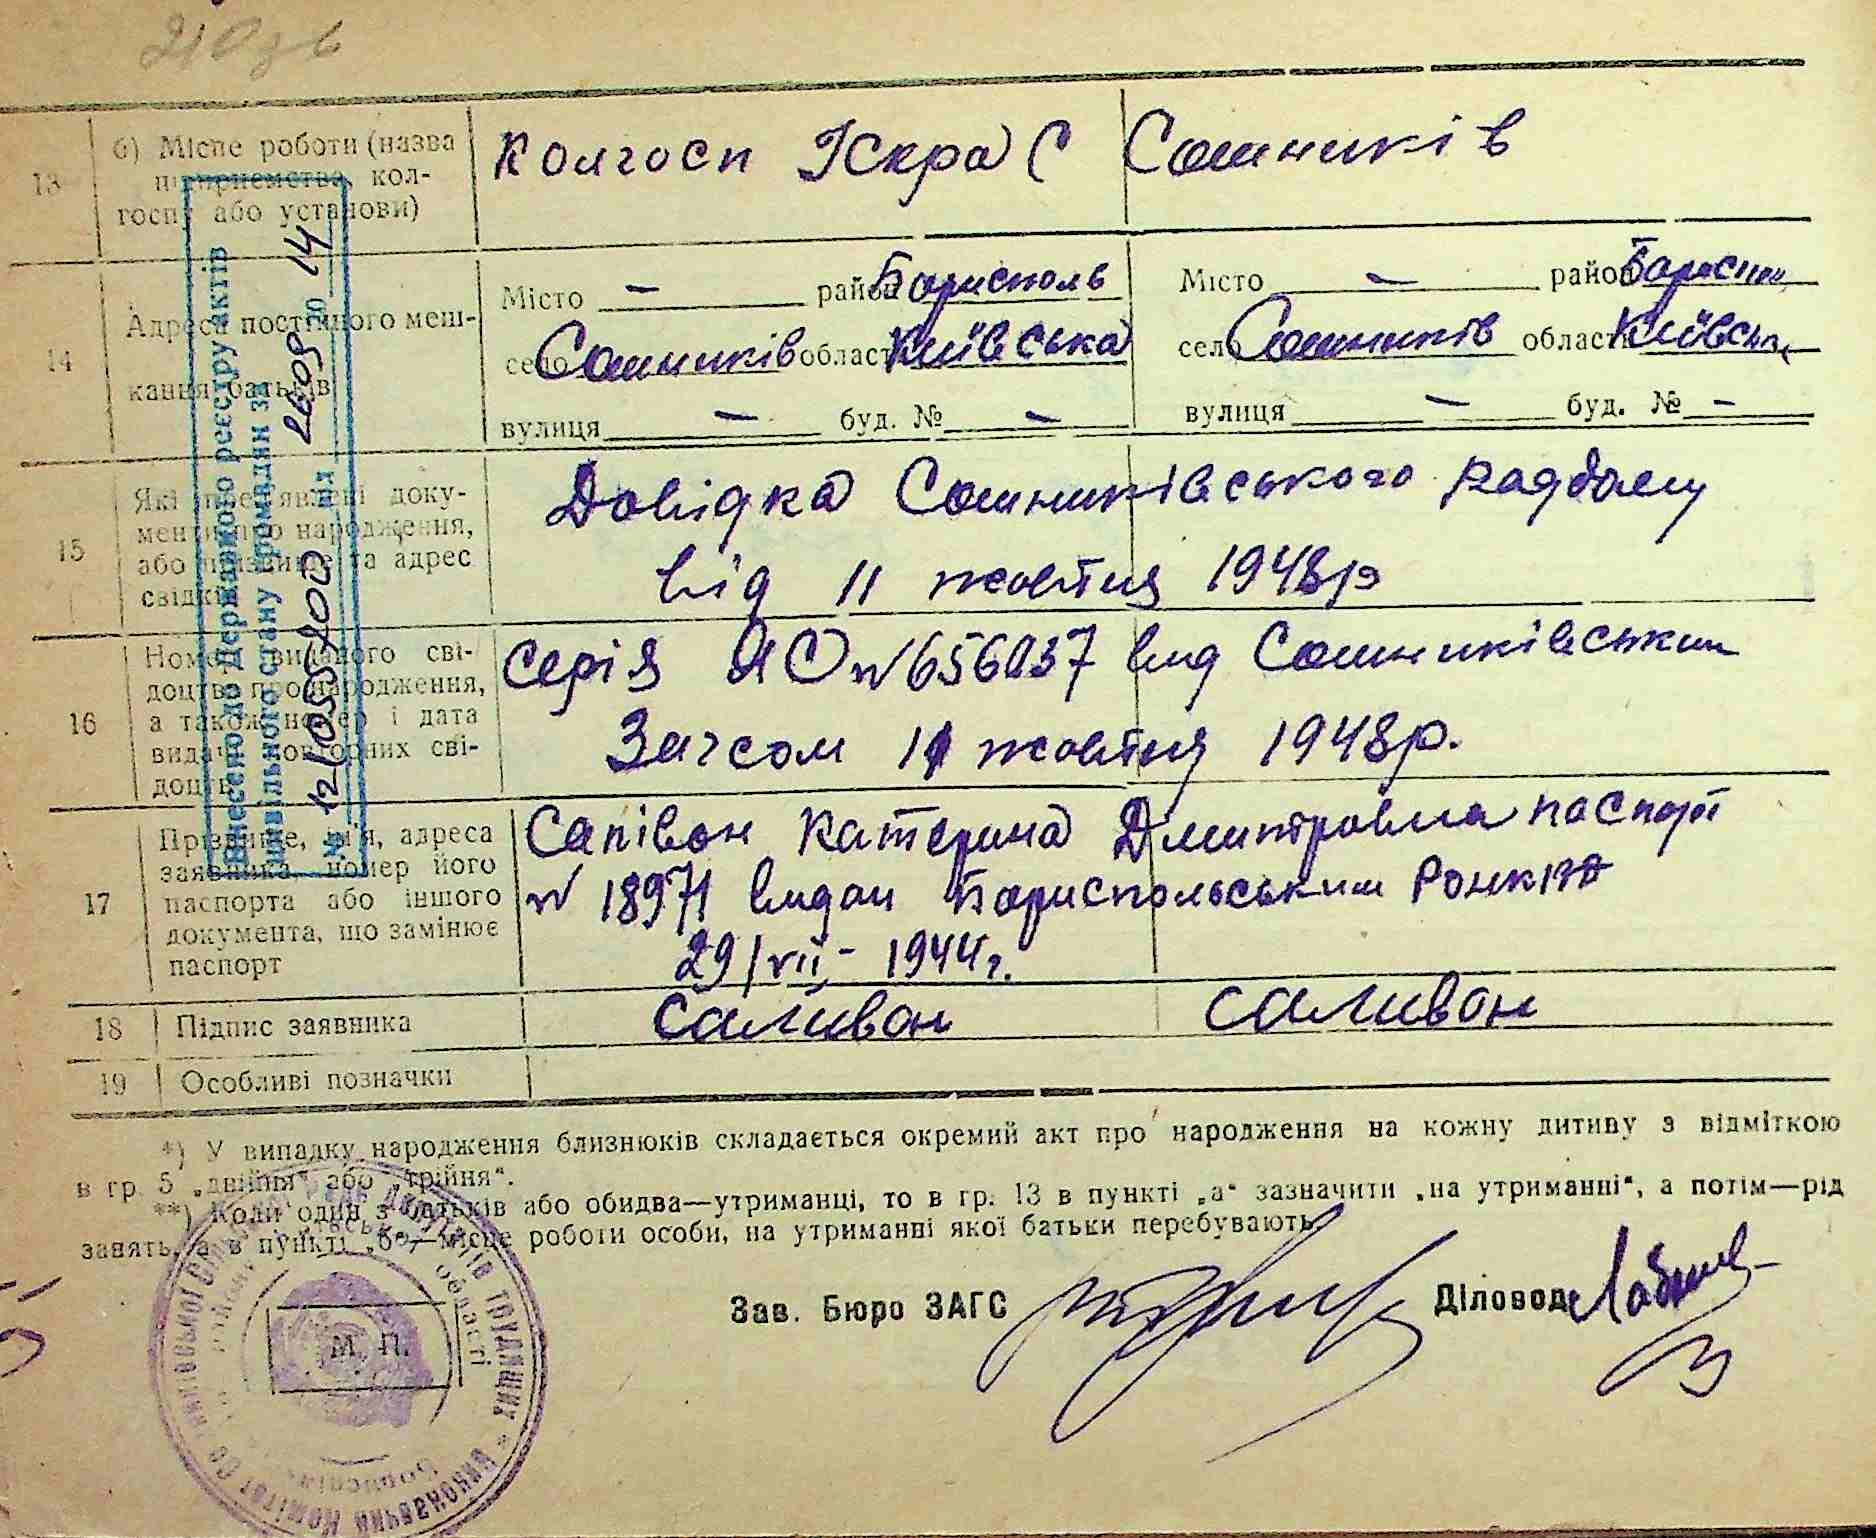 210зв
13
б) Місце роботи (назва
підприємства, кол-
госпу або установи)
Колгосп Іскра С Сошників
14
Адреса постійного меш-
кання батьків
Місто — район Борисполь
село Сошників область Київська
вулиця — буд. № —
Місто — район Бориспол
село Сошників область Київська
вулиця — буд. № —
15
Які пред'явлені доку-
менти про народження,
або прізвище та адрес
свідків
Довідка Сошниківського родбому
від 11 жовтня 1948р
16
Номер виданого сві-
доцтва про народження,
а також номер і дата
видачі повторних сві-
доцтв
Серія ЯС № 656037 вид Сошниківським
Загсом 11 жовтня 1948р.
17
Прізвище, ім'я, адреса
заявника, номер його
паспорта або іншого
документа, що замінює
паспорт
Салівон Катерина Дмитровна паспорт
№ 18971 видан Бориспольським
29/VII- 1944г.
18
Підпис заявника
Саливон Саливон
19
Особливі позначки
Внесено до Державного реєстру актів
цивільного стану громадян за
№ 12 від 2009 14
*) У випадку народження близнюків складається окремий акт про народження на кожну дитину з відміткою
в гр. 5 „двійня“ або „трійня“.
**) Коли один з батьків або обидва—утриманці, то в гр. 13 в пункті „а“ зазначити „на утриманні“, а потім—рід
занять, а в пункті „б“—місце роботи особи, на утриманні якої батьки перебувають.
Зав. Бюро ЗАГС
Діловод
М. П.
Виконавчий Комітет
депутатів трудящих
області